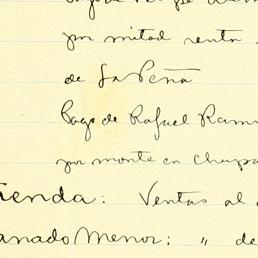 por mitad renta
de La Peña
Pago de Rafael Ram
por monte en Chapa
ienda: Ventas al
anado Menor: " de